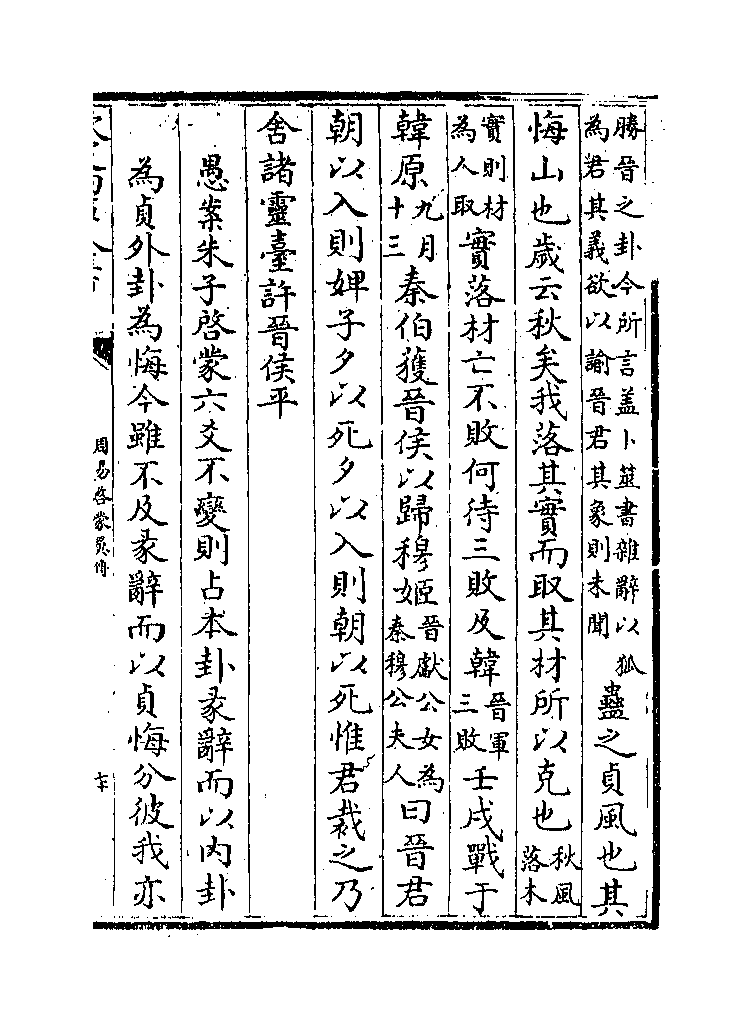 勝晉之卦今所言盖卜筮書雜辭以狐
為君其義欲以諭晉君其象則未聞
蠱之貞風也其
悔山也歲云秋矣我落其實而取其材所以克也
秋風
落木
實則材
為人取
實落材亡不敗何待三敗及韓
晉軍
三敗
壬戌戰于
韓原
九月
十三
秦伯獲晉侯以歸穆姬
晉獻公女為
秦穆公夫人
曰晉君
朝以入則婢子夕以死夕以入則朝以死惟君裁之乃
舍諸靈臺許晉侯平
愚案朱子啓蒙六爻不變則占本卦彖辭而以内卦
為貞外卦為悔今雖不及彖辭而以貞悔分彼我亦
周易啓蒙翼傳